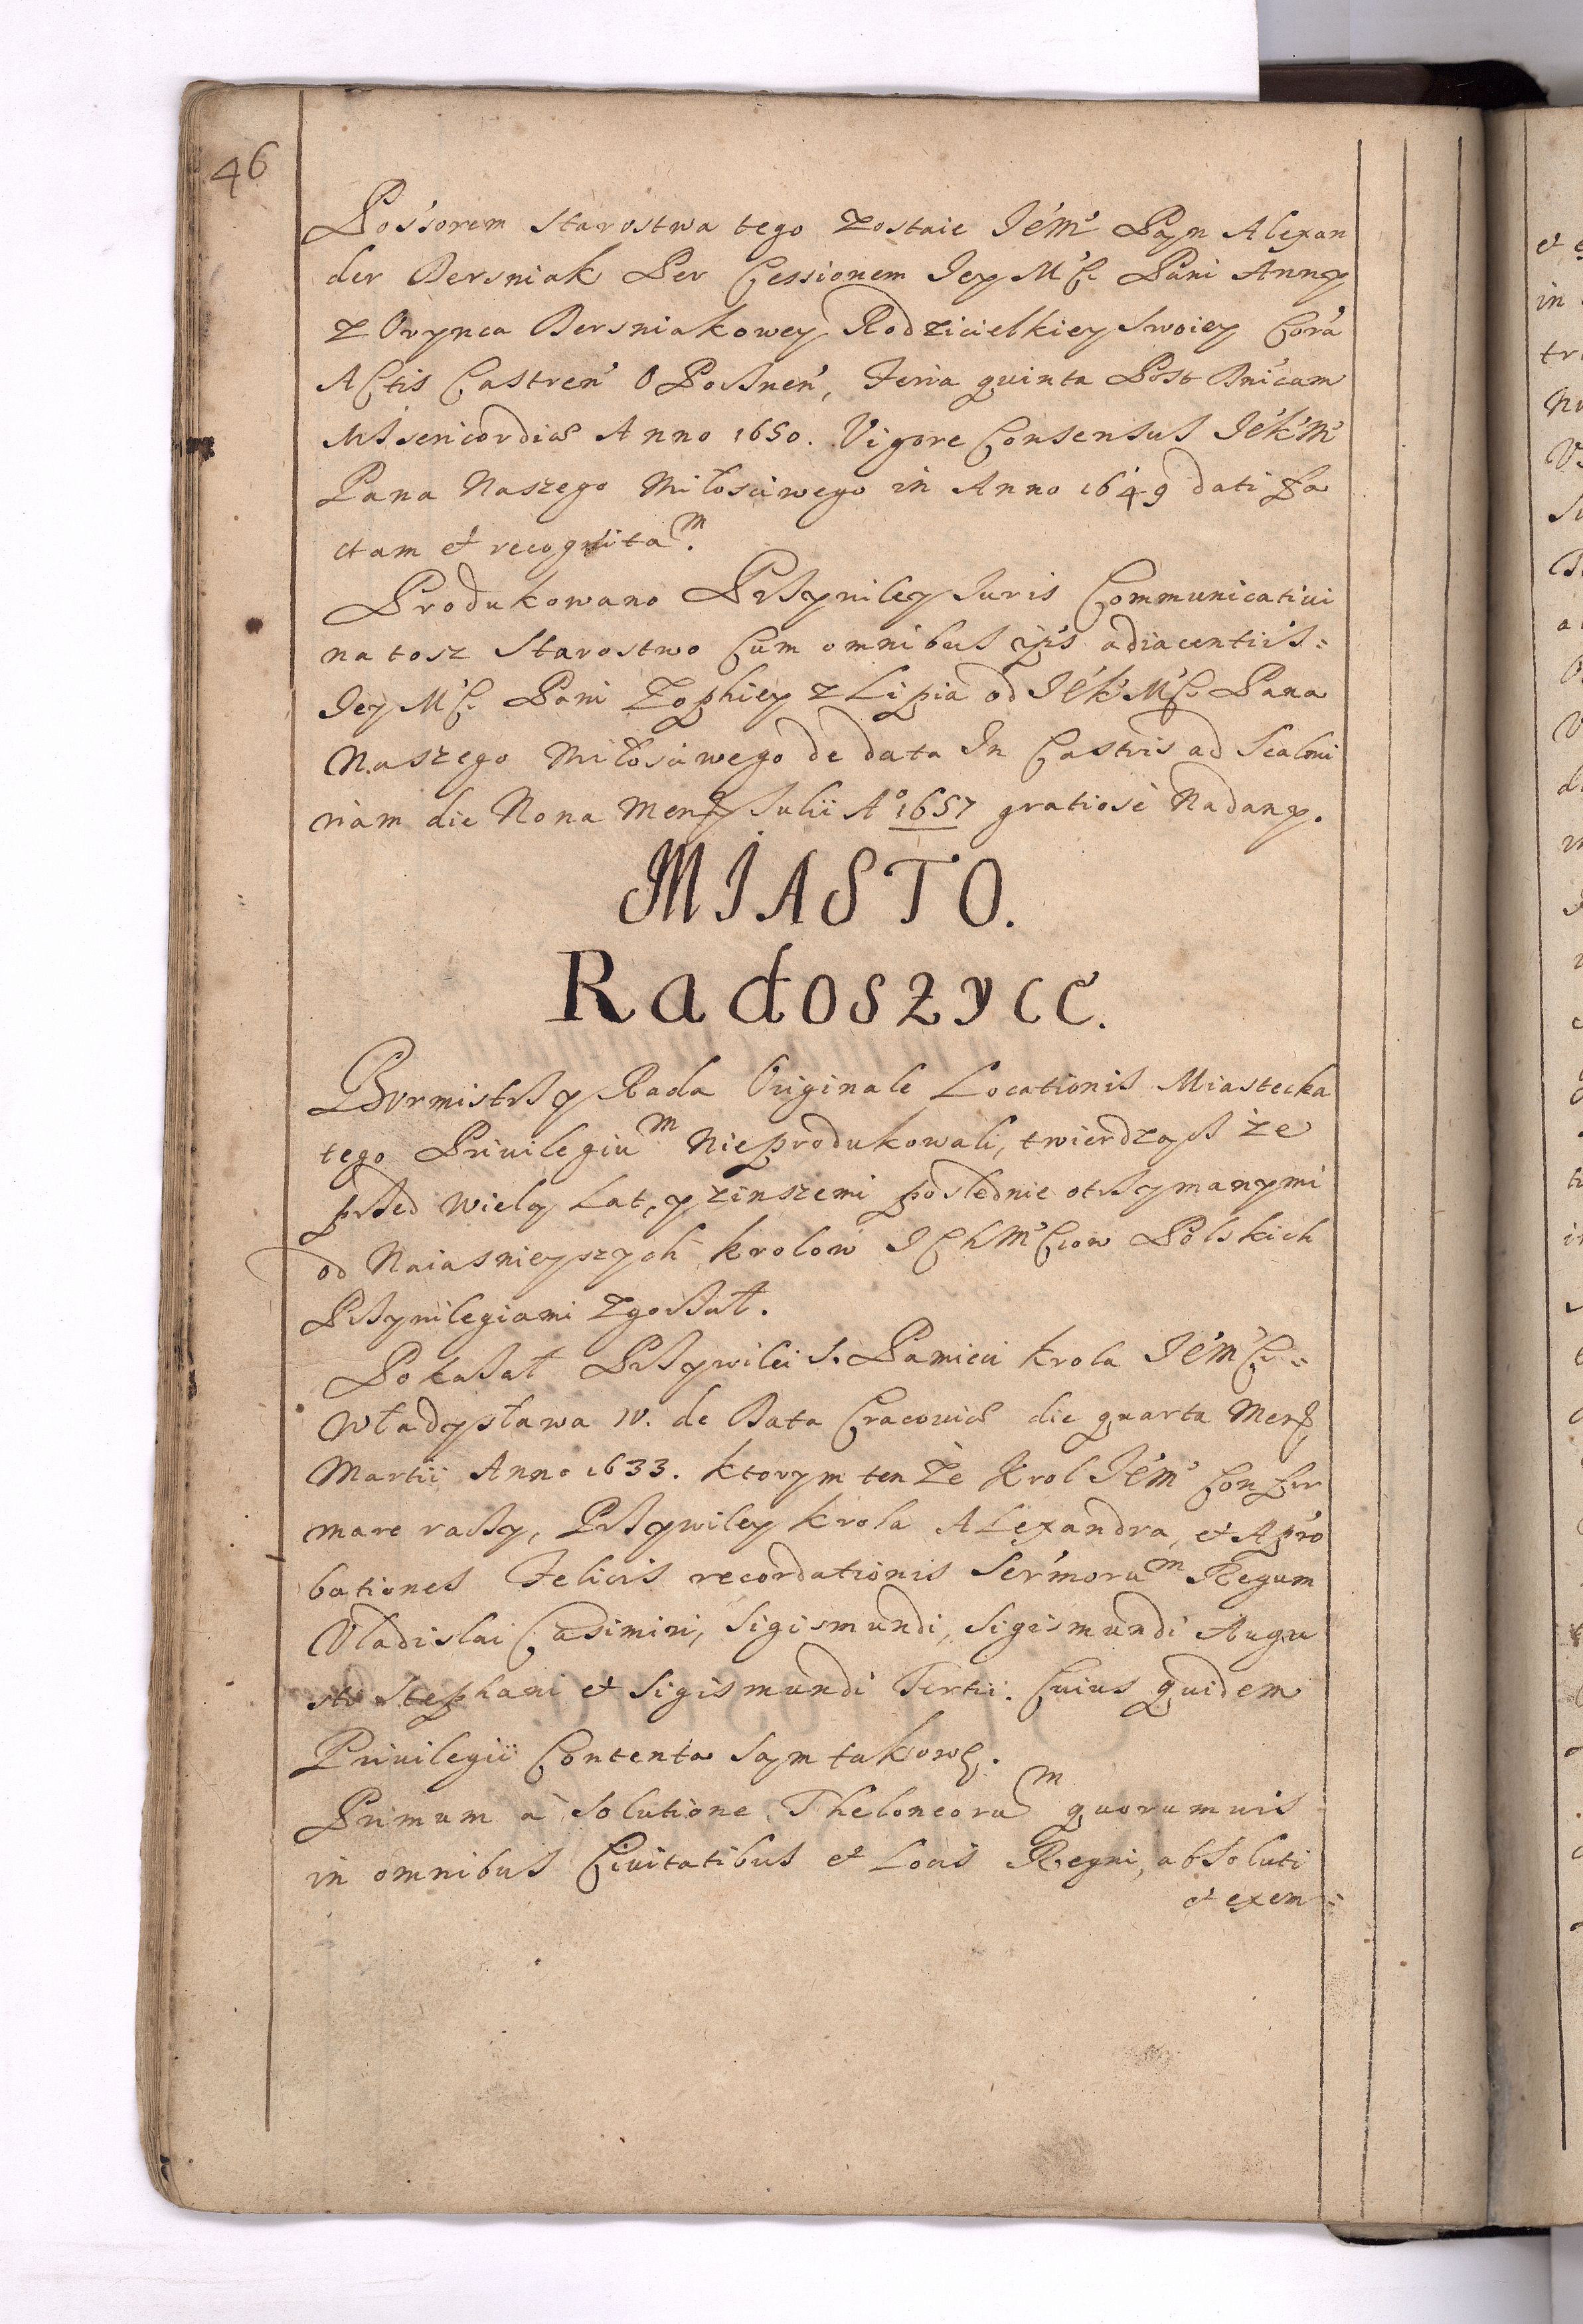 46
Possorem Starostwa tego zostaie Jem' Pąn Alexan
der Bersniak Per Cessionem Jey M'C Pani Anny
z Orynca Bersniakowey Rodzicielkiey Swoiey Corá
ACtis Castreń OPossneń, Feria quinta Post Dnicam
Misericordiæ Anno 1650. Vigore Consensus JeKM'
Pana Naszego Miłosciwego in Anno 1649 dati fa
ctam et recognitam.
Produkowano PRzyuiley Juris Communicatiui
na tosz Starostwo Cum omnibus ipis adiacentiis:
Jey M'C. Pani Zophiey z Lipia od JeK M'C. Pana
Naszego Miłosciwego de data In Castris ad Scalmi
riam die Nona Mens Julii A° 1657 gratiosè Nadany.
MIASTO.
Radoszyce.
Burmistrz y Rada Originale Locationis Miastecka
tego Priuilegium Nieprodukowali, twierdząsz że
przed wielą Lat, y zinszemi poslednie otrzymanymi
od Naiasnieyszych krolow JChM'Ciow Polskich
Przyuilegiami zgorzał.
Pokazał Przywilei S. Pamieci krola JemC:
Władysława IV. de Data Cracouiæ die quarta Mens
Martii Anno 1633. ktorym ten że Krol Jem' Confir
mare raczy, Przywiley krola ALexandra, et Apro
bationes Felicis recordationis Sermorum Regum
Vladislai Casimiri, Sigismundi, Sigismundi Augu
sti Stephani et Sigismundi Tertii. Cuius quidem
Priuilegii Contenta sąm takowe.
Primum à Solutione Theloneorum quorumuis
in omnibus Ciuitatibus et Locis Regni, absoluti
et exem: